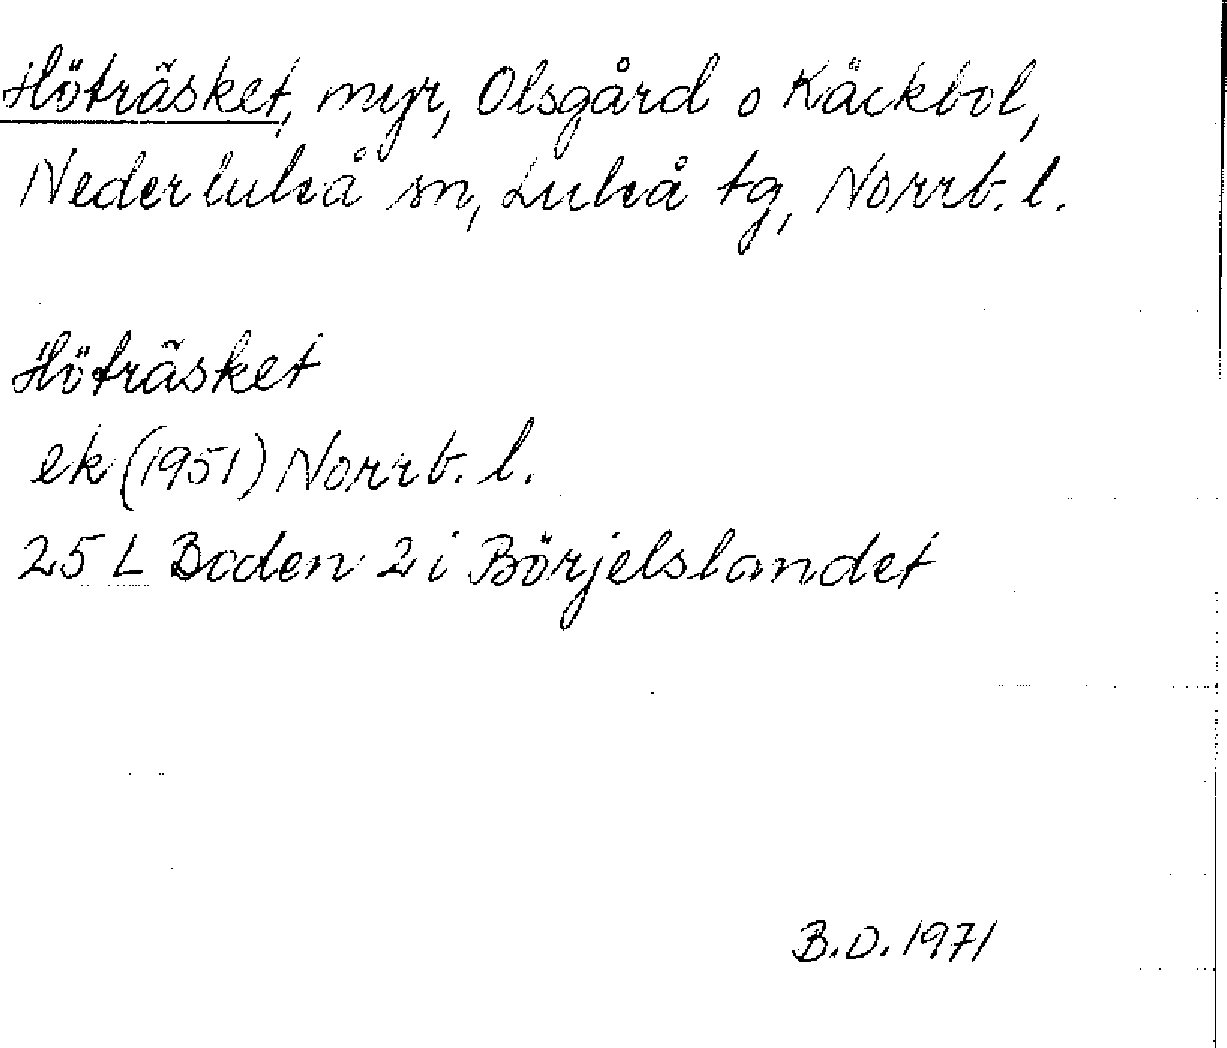 Höträsket, myr, Olsgård o Käckbol,
Nederluleå sn, Luleå tg, Norrb. l.
Höträsket
ek (1951) Norrb. l.
25 L Boden 2 i Börjelslandet
B.D. 1971